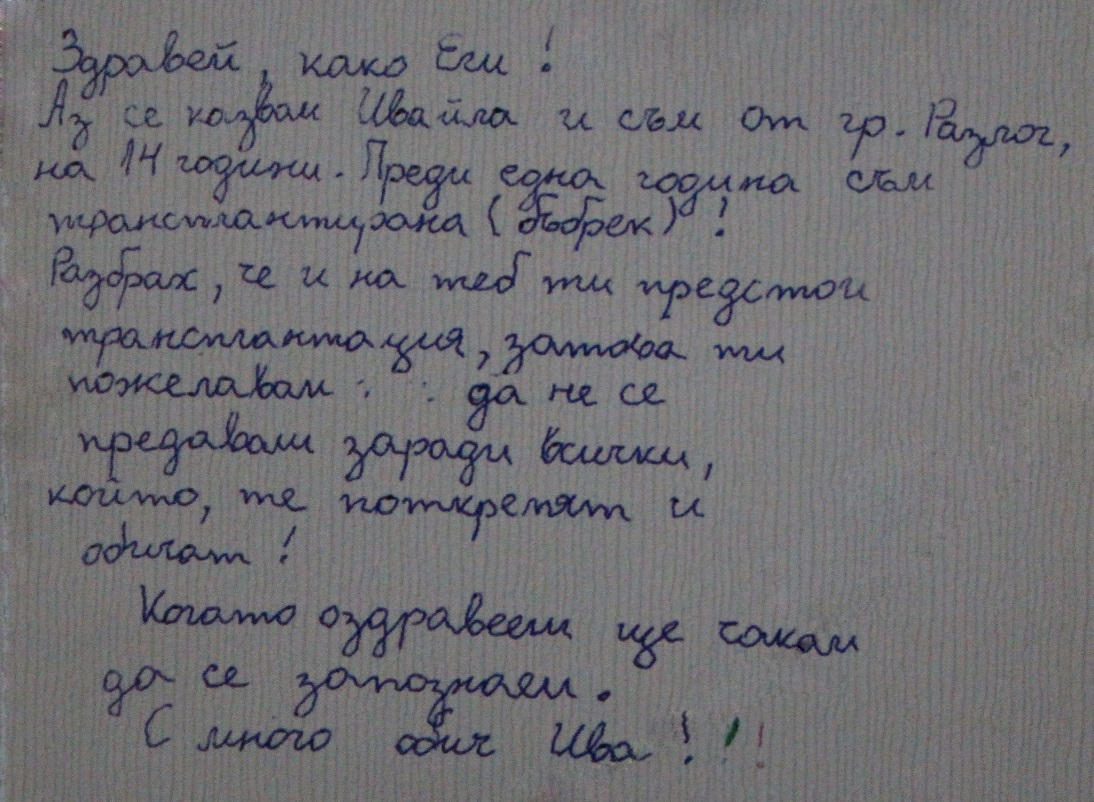 Здравей, како Еги!
Аз се казвам Ивайла и съм от гр. Разлог,
на 14 години. Преди една година съм
трансплантирана (бъбрек)!
Разбрах, че и на теб ти предстои
трансплантация, затова ти
пожелавам : : да не се
предаваш заради всички,
който, те поткрепят и
обичат!
Когато оздравееш ще чакам
да се запознаем.
С много обич Ива!!!